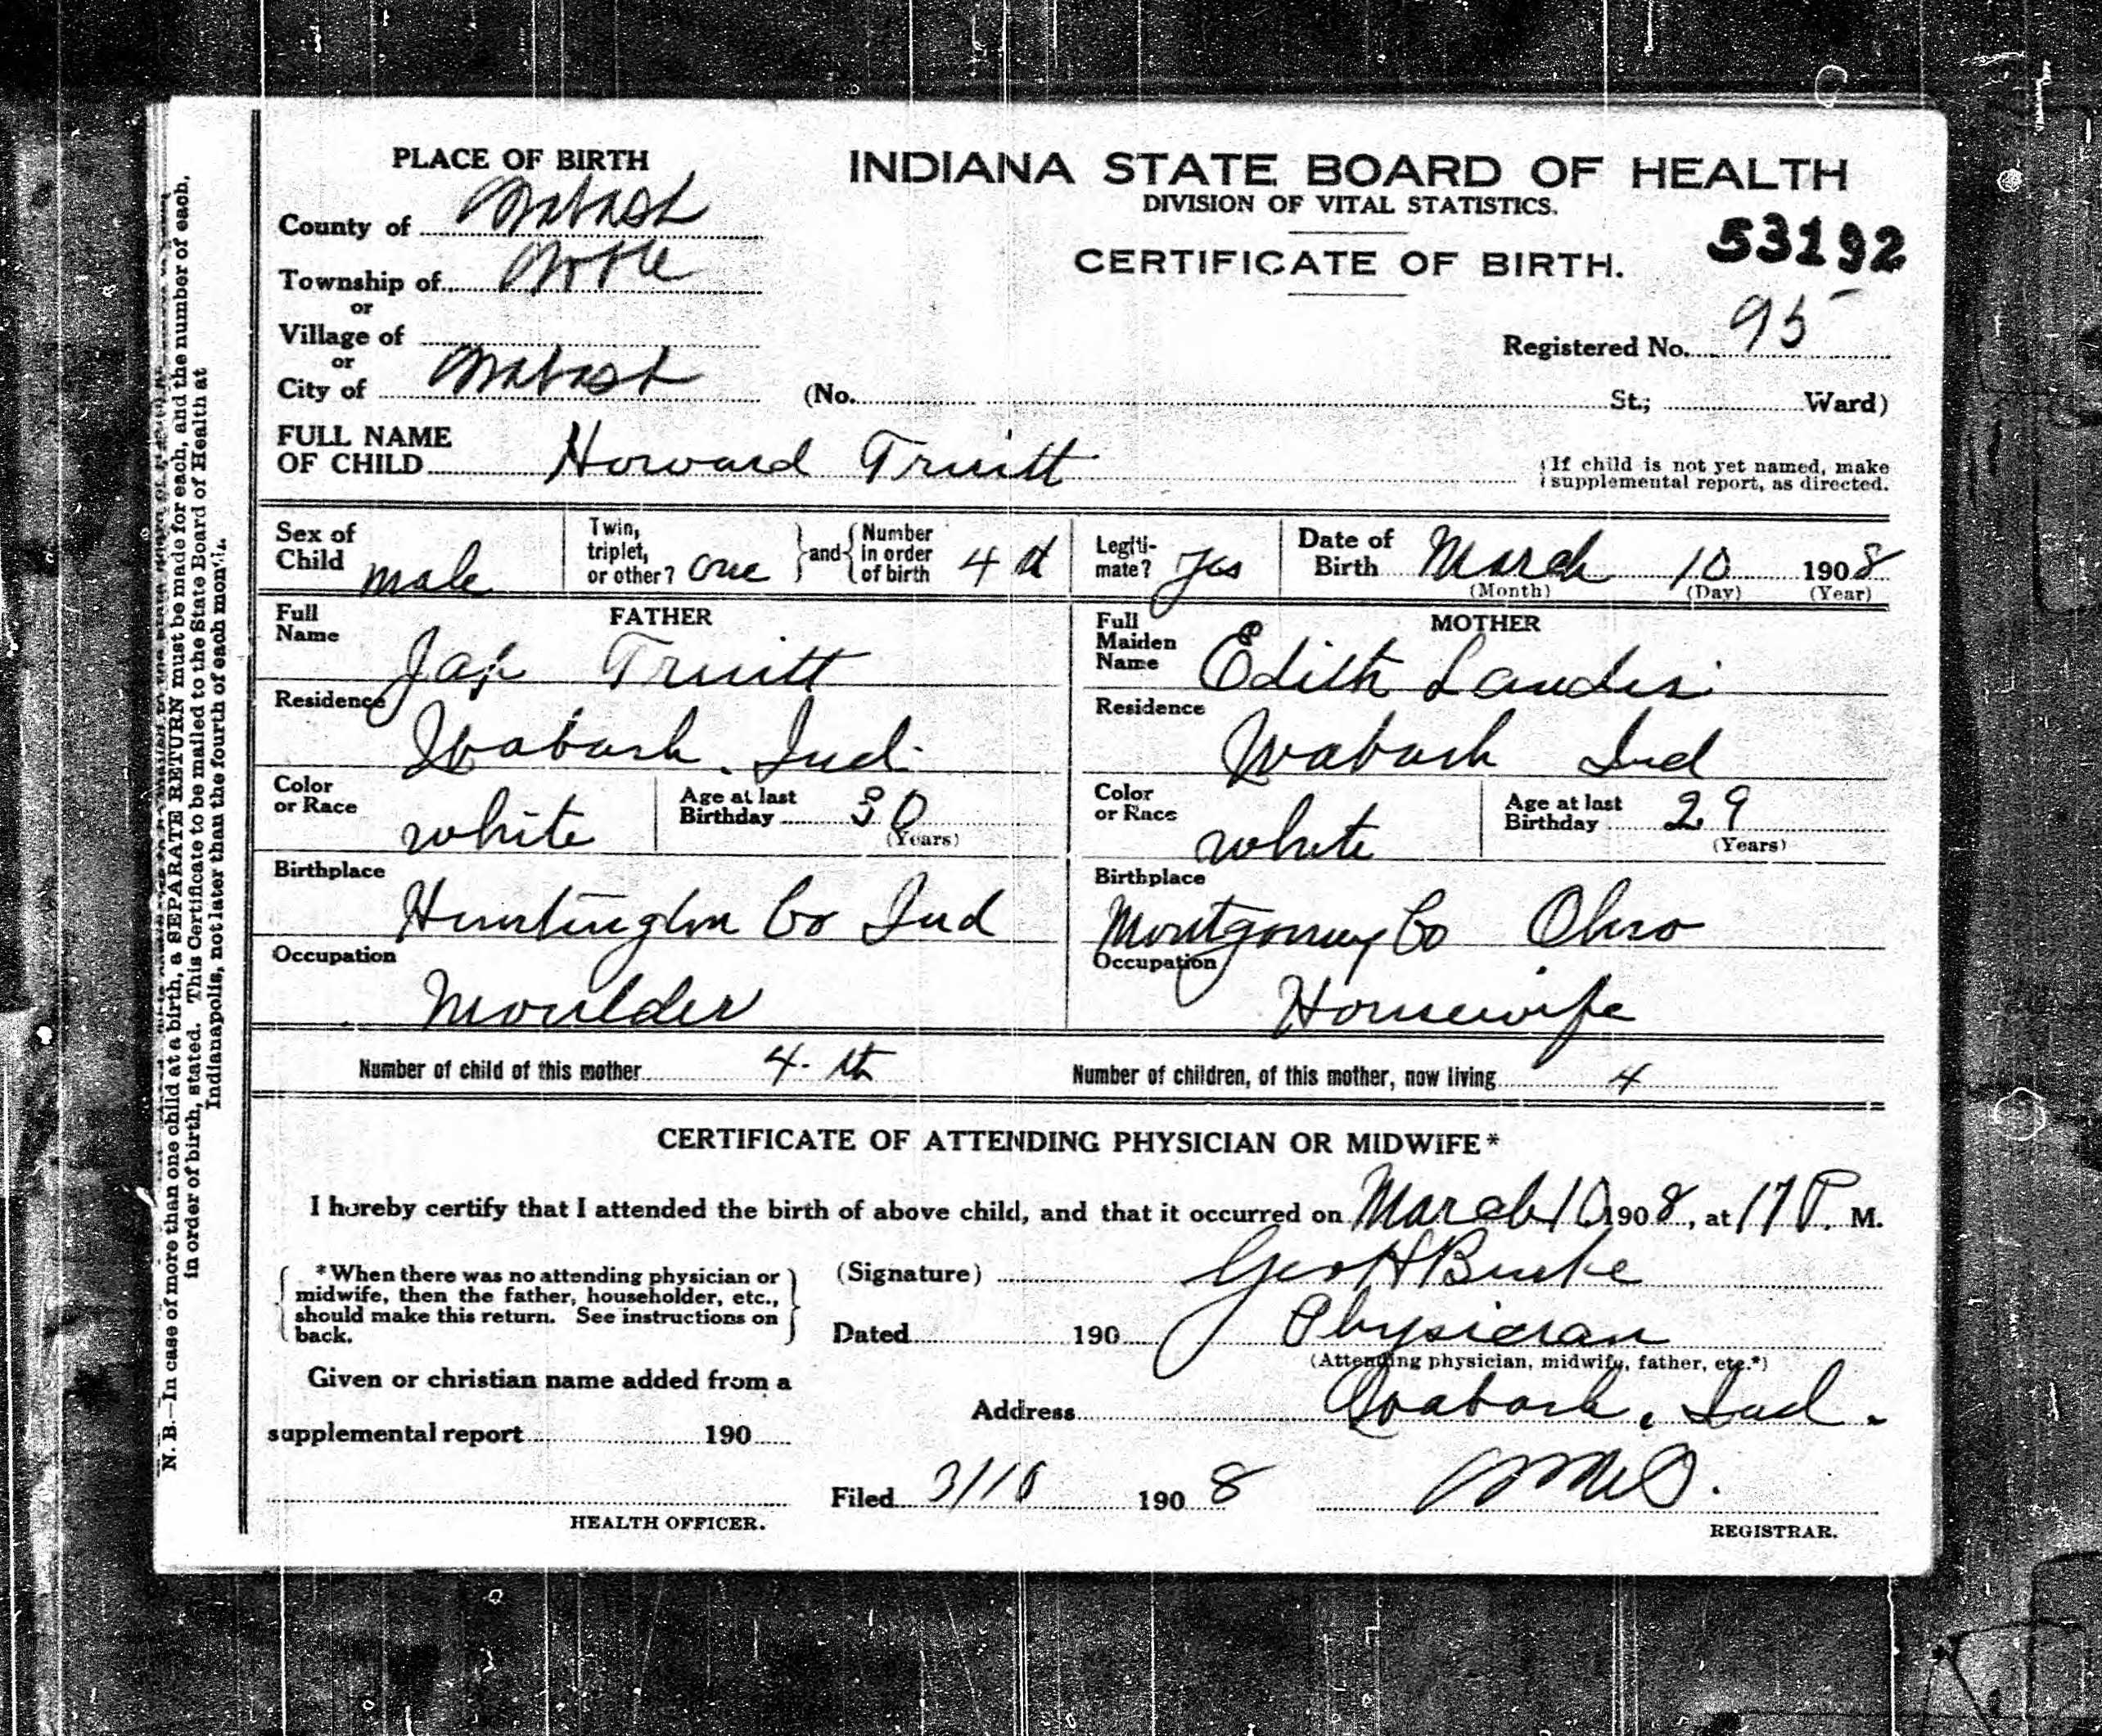 PLACE OF BIRTH
INDIANA STATE BOARD OF HEALTH
DIVISION OF VITAL STATISTICS.
CERTIFICATE OF BIRTH.
53192
County of Wabash
Township of Noble
or
Village of
or
City of Wabash
Registered No. 95
(No. St.; Ward)
FULL NAME
OF CHILD Howard Truitt
If child is not yet named, make
supplemental report, as directed.
Sex of
Child male
Twin,
triplet,
or other? one
and
Number
in order
of birth 4th
Legiti-
mate? Yes
Date of
Birth March 10 1908
(Month) (Day) (Year)
FATHER
Full
Name Truitt
Residence
Wabash. Ind.
Color
or Race white
Age at last
Birthday 30
(Years)
Birthplace
Huntington Co Ind
Occupation
Moulder
MOTHER
Full
Maiden
Name Edith Landis
Residence
Wabash Ind
Color
or Race white
Age at last
Birthday 29
(Years)
Birthplace
Montgomery Co Ohio
Occupation
Housewife
Number of child of this mother 4.th
Number of children, of this mother, now living 4
CERTIFICATE OF ATTENDING PHYSICIAN OR MIDWIFE*
I hereby certify that I attended the birth of above child, and that it occurred on March 10 1908, at P. M.
*When there was no attending physician or
midwife, then the father, householder, etc.,
should make this return. See instructions on
back.
(Signature) Geo H Burke
Dated 190 Physician
(Attending physician, midwife, father, etc.*)
Given or christian name added from a
supplemental report 190
Address Wabash, Ind.
Filed 3/10 1908
HEALTH OFFICER.
REGISTRAR.
N. B.—In case of more than one child at a birth, a SEPARATE RETURN must be made for each, and the number of each,
in order of birth, stated. This Certificate to be mailed to the State Board of Health at
Indianapolis, not later than the fourth of each month.